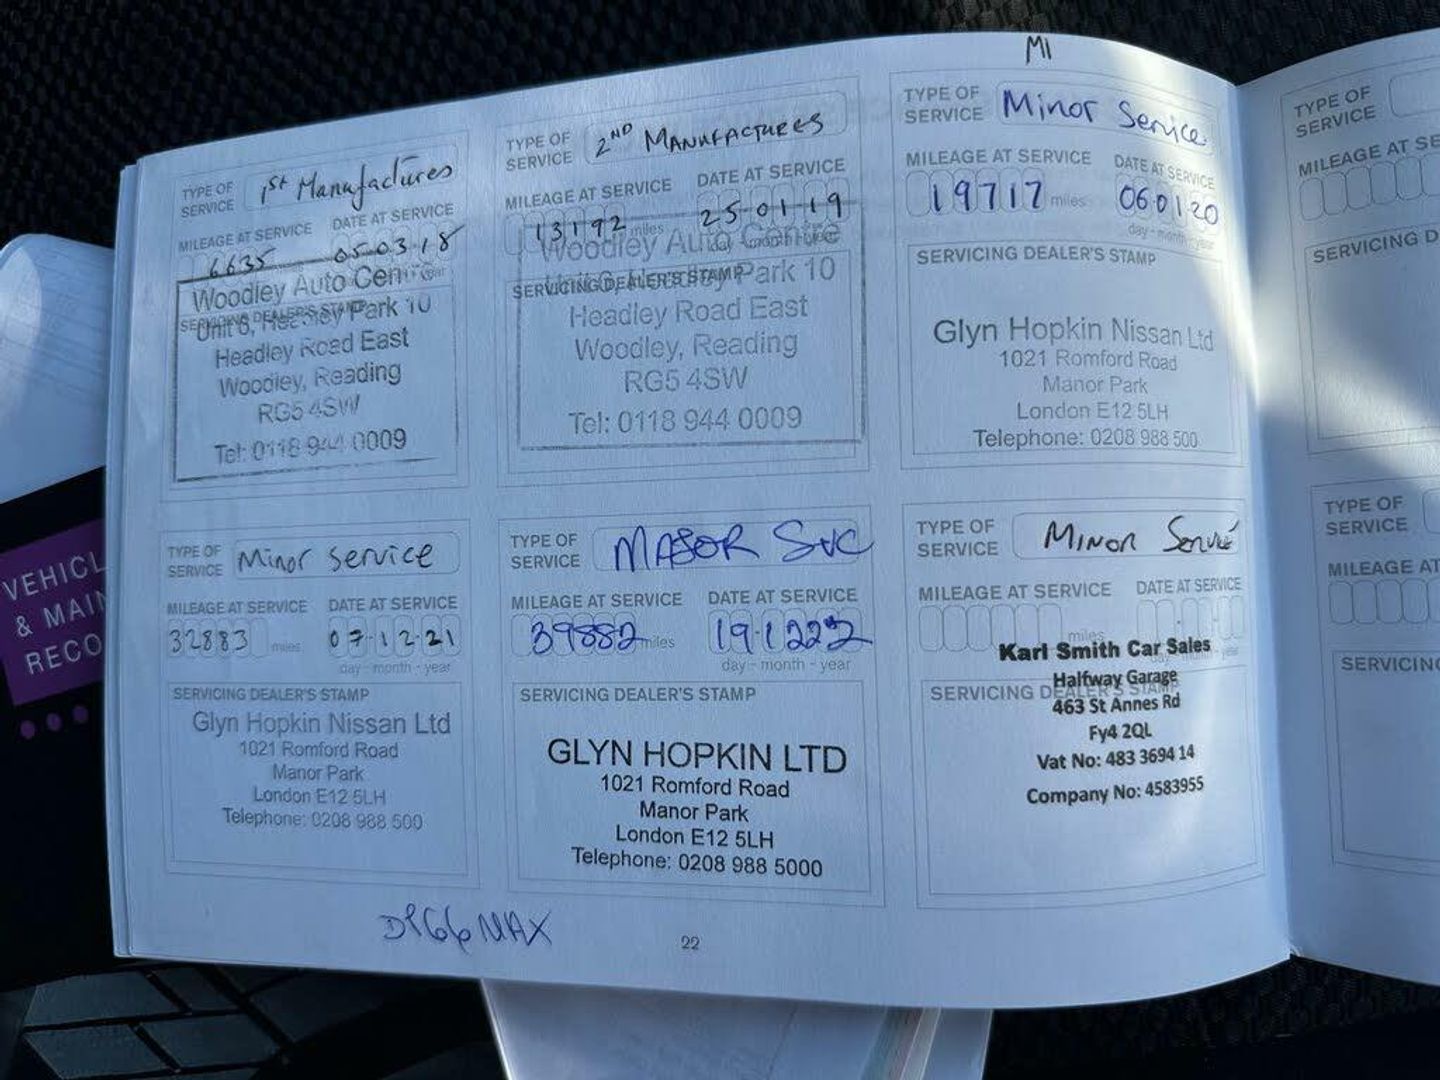 M1
TYPE OF SERVICE 1st Manufactures
MILEAGE AT SERVICE DATE AT SERVICE
6635 05-03-18
SERVICING DEALER'S STAMP
Woodley Auto Centre
Unit 6, Headley Park 10
Headley Road East
Woodley, Reading
RG5 4SW
Tel: 0118 944 0009
TYPE OF SERVICE 2ND MANUFACTURES
MILEAGE AT SERVICE DATE AT SERVICE
13192 miles 25-01-19
SERVICING DEALER'S STAMP
Woodley Auto Centre
Unit 6, Headley Park 10
Headley Road East
Woodley, Reading
RG5 4SW
Tel: 0118 944 0009
TYPE OF SERVICE Minor Service
MILEAGE AT SERVICE DATE AT SERVICE
19717 miles 06 01 20
day - month - year
SERVICING DEALER'S STAMP
Glyn Hopkin Nissan Ltd
1021 Romford Road
Manor Park
London E12 5LH
Telephone: 0208 988 500
TYPE OF SERVICE Minor service
MILEAGE AT SERVICE DATE AT SERVICE
32883 miles 07-12-21
day - month - year
SERVICING DEALER'S STAMP
Glyn Hopkin Nissan Ltd
1021 Romford Road
Manor Park
London E12 5LH
Telephone: 0208 988 500
TYPE OF SERVICE MAJOR SVC
MILEAGE AT SERVICE DATE AT SERVICE
39882 miles 19-12-22
day - month - year
SERVICING DEALER'S STAMP
GLYN HOPKIN LTD
1021 Romford Road
Manor Park
London E12 5LH
Telephone: 0208 988 5000
TYPE OF SERVICE MINOR Service
MILEAGE AT SERVICE DATE AT SERVICE
miles
SERVICING DEALER'S STAMP
Karl Smith Car Sales
Halfway Garage
463 St Annes Rd
Fy4 2QL
Vat No: 483 3694 14
Company No: 4583955
22
TYPE OF SERVICE
MILEAGE AT SE
SERVICING D
TYPE OF SERVICE
MILEAGE AT
SERVICING
VEHICL
& MAIN
RECO